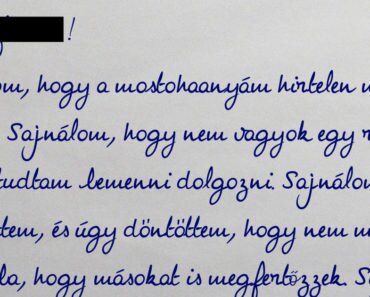 !
hogy a mostohaanyám hirtelen
Sajnálom, hogy nem vagyok egy
tudtam bemenni dolgozni. Sajnálom
és úgy döntöttem, hogy nem
hogy másokat is megfertőzzek.